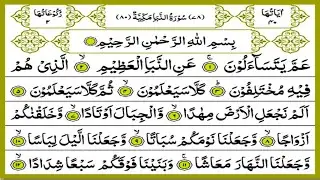 اٰيَاتُهَا ۴۰ (۷۸) سُوْرَةُ النَّبَاِ مَكِّيَّةٌ (۸۰) رُكُوْعَاتُهَا ۲
بِسْمِ اللهِ الرَّحْمٰنِ الرَّحِيْمِ
عَمَّ يَتَسَآءَلُوْنَ ۱ عَنِ النَّبَاِ الْعَظِيْمِ ۲ الَّذِيْ هُمْ
فِيْهِ مُخْتَلِفُوْنَ ۳ كَلَّا سَيَعْلَمُوْنَ ۴ ثُمَّ كَلَّا سَيَعْلَمُوْنَ ۵
اَلَمْ نَجْعَلِ الْاَرْضَ مِهٰدًا ۶ وَّالْجِبَالَ اَوْتَادًا ۷ وَّخَلَقْنٰكُمْ
اَزْوَاجًا ۸ وَّجَعَلْنَا نَوْمَكُمْ سُبَاتًا ۹ وَّجَعَلْنَا الَّيْلَ لِبَاسًا ۱۰
وَّجَعَلْنَا النَّهَارَ مَعَاشًا ۱۱ وَّبَنَيْنَا فَوْقَكُمْ سَبْعًا شِدَادًا ۱۲